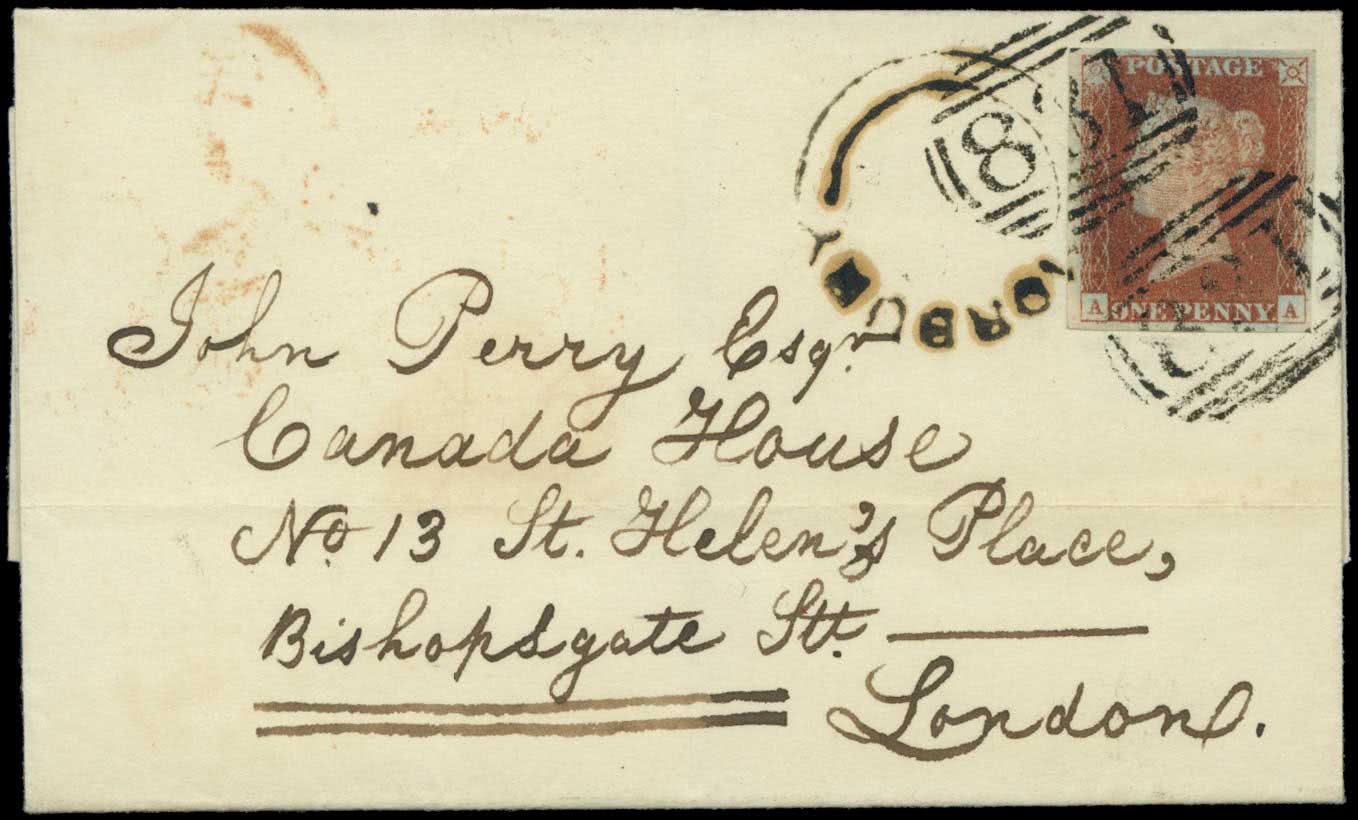 POSTAGE
831
A ONE PENNY A
John Perry Esqr.
Canada House
No 13 St. Helen's Place,
Bishopsgate Stt.
London.